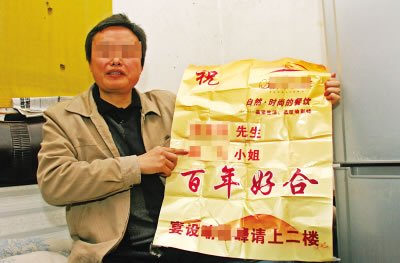 祝
自然·时尚的餐饮
先生
小姐
百年好合
宴设 请上二楼